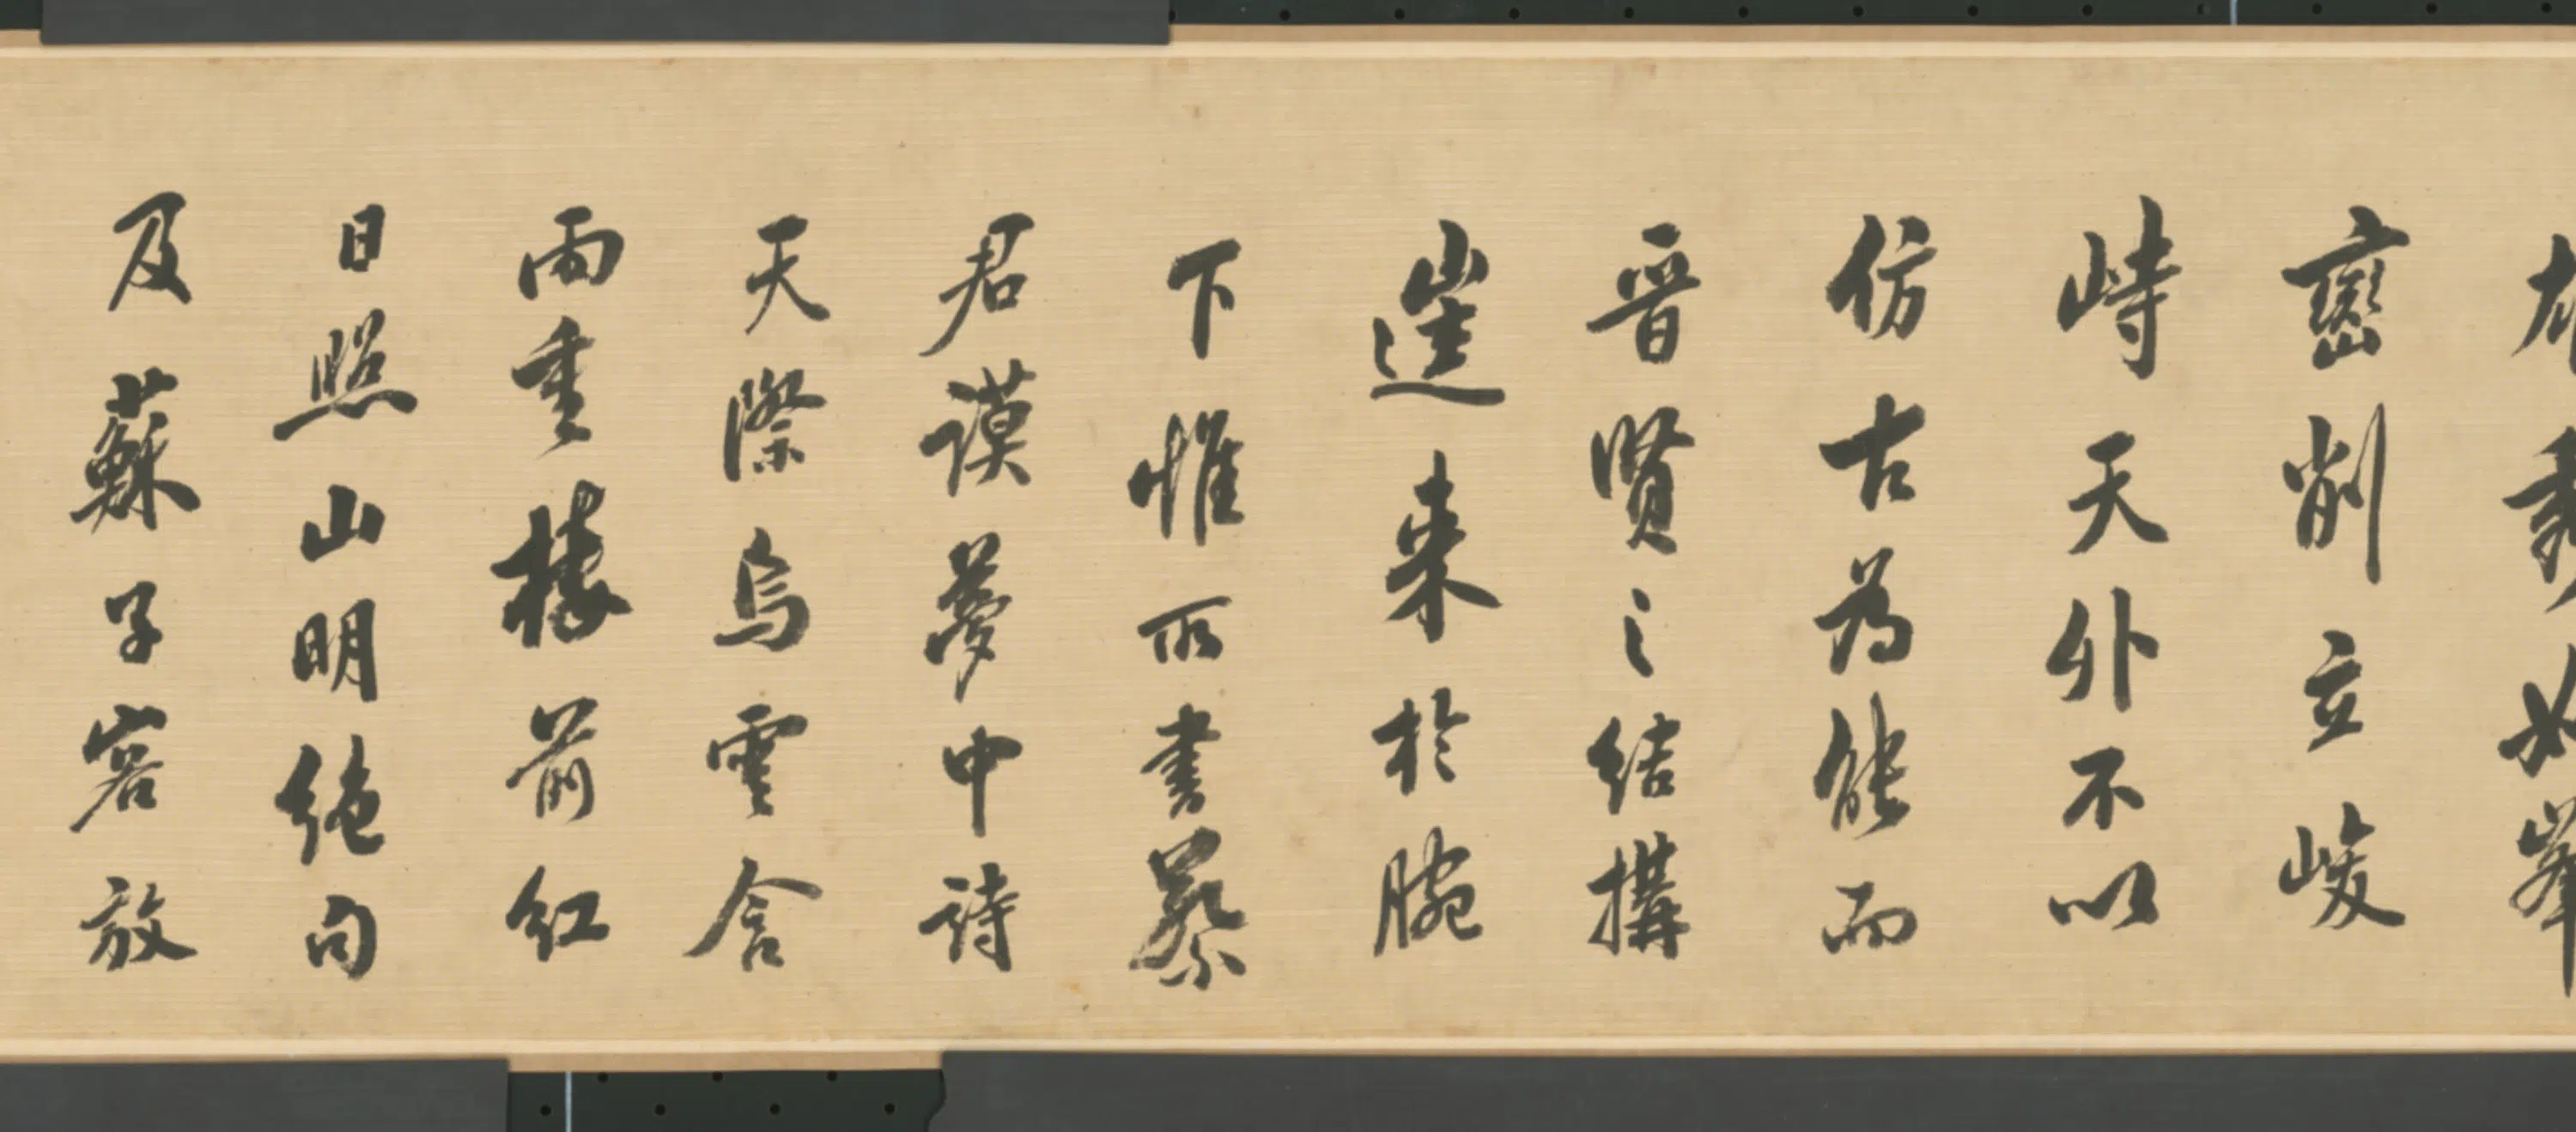 巒削立峻
峙天外不以
仿古為能而
晉賢之結構
遝来於腕
下惟所書蔡
君謨夢中詩
天際烏雲含
雨重樓前紅
日照山明絕句
及蘇子容放